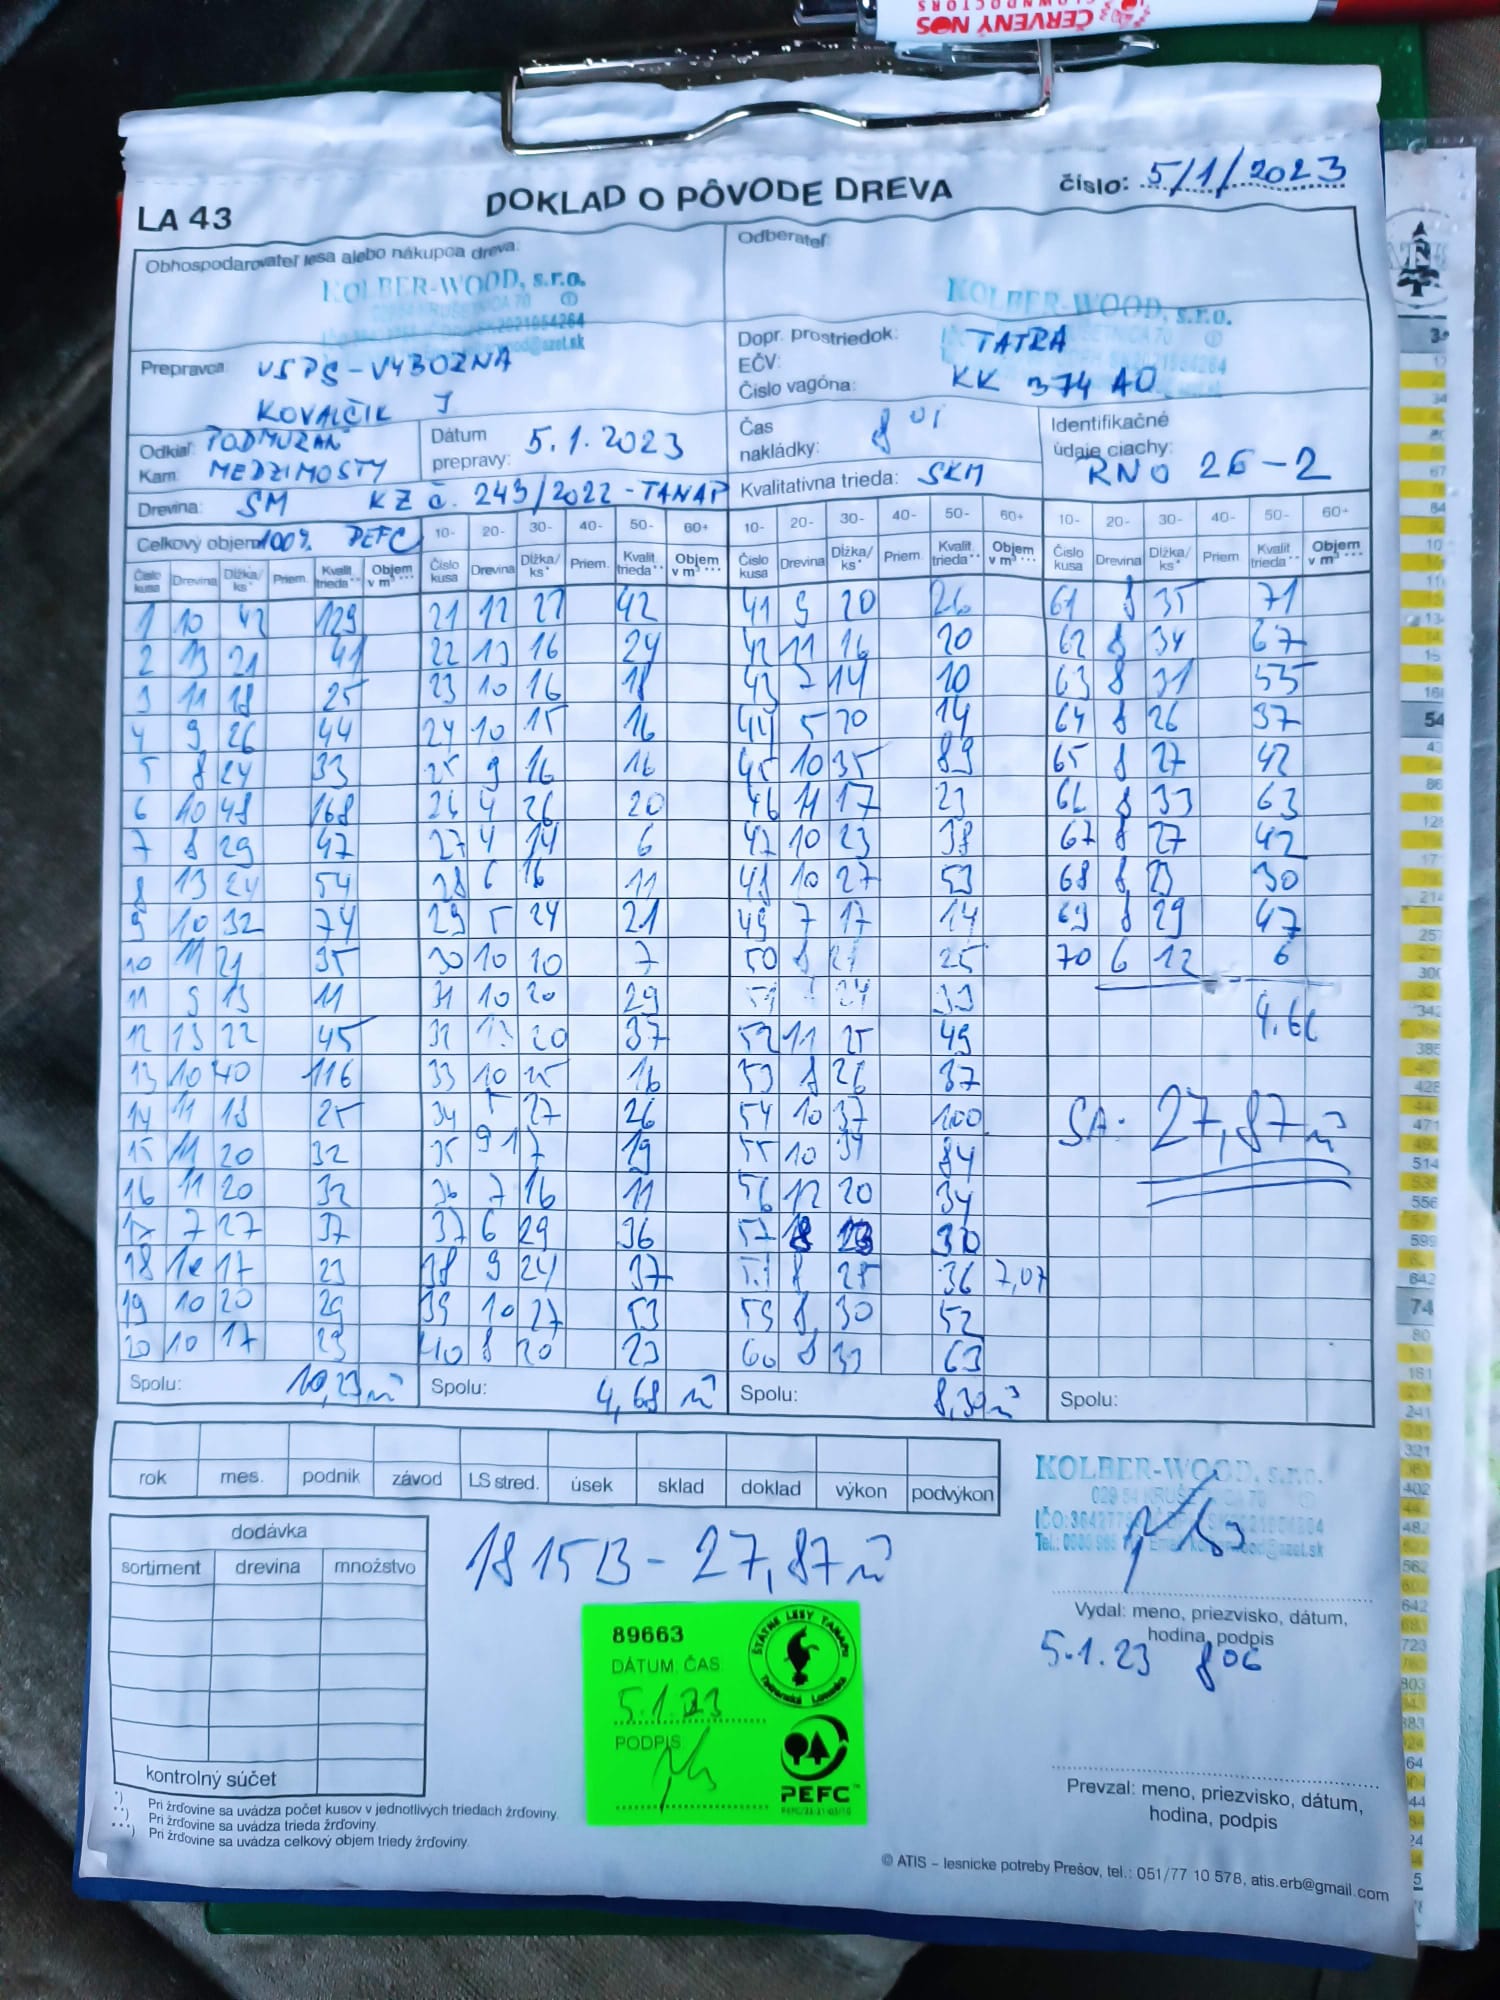 ČERVENÝ NOS
CLOWNDOCTORS
LA 43
DOKLAD O PÔVODE DREVA
číslo: 5/1/2023
Obhospodarovateľ lesa alebo nákupca dreva:
KOLBER-WOOD, s.r.o.
Odberateľ:
KOLBER-WOOD, s.r.o.
Prepravca:
KOVALČIK J
Dopr. prostriedok: TATRA
EČV:
Číslo vagóna: KK 374 AO
Odkiaľ: PODMURAŇ
Kam: MEDZIMOSTY
Dátum prepravy: 5.1.2023
Čas nakládky: 8 01
Identifikačné údaje ciachy: RNO 26-2
Drevina: SM KZ č. 243/2022-TANAP
Kvalitatívna trieda: SKM
Celkový objem 100% PEFC
10- 20- 30- 40- 50- 60+
10- 20- 30- 40- 50- 60+
10- 20- 30- 40- 50- 60+
Číslo kusa Drevina Dĺžka/ks* Priem. Kvalit. trieda** Objem v m³***
Číslo kusa Drevina Dĺžka/ks* Priem. Kvalit. trieda** Objem v m³***
Číslo kusa Drevina Dĺžka/ks* Priem. Kvalit. trieda** Objem v m³***
Číslo kusa Drevina Dĺžka/ks* Priem. Kvalit. trieda** Objem v m³***
1 10 42 129 21 12 27 42 41 9 20 26 61 8 35 71
2 13 21 41 22 13 16 24 42 11 16 20 62 8 34 67
3 11 18 25 23 10 16 18 43 7 14 10 63 8 31 55
4 9 26 44 24 10 15 16 44 5 20 14 64 8 26 37
5 8 24 33 25 9 16 16 45 10 35 89 65 8 27 42
6 10 48 168 26 4 26 20 46 11 17 23 66 8 33 63
7 8 29 47 27 4 14 6 47 10 23 38 67 8 27 42
8 13 24 54 28 6 16 11 48 10 27 53 68 8 23 30
9 10 32 74 29 5 24 21 49 7 17 14 69 8 29 47
10 11 21 35 30 10 10 7 50 8 21 25 70 6 12 6
11 9 13 11 31 10 20 29 51 24 33 4,66
12 13 22 45 32 13 20 37 52 11 25 49
13 10 40 116 33 10 15 16 53 8 26 37
14 11 18 25 34 5 27 26 54 10 37 100 SA: 27,87 m³
15 11 20 32 35 9 17 19 55 10 34 84
16 11 20 32 36 7 16 11 56 12 20 34
17 7 27 37 37 6 29 36 57 8 23 30
18 17 23 38 9 24 37 58 8 25 36 7,07
19 10 20 29 39 10 27 53 59 8 30 52
20 10 17 23 40 8 20 23 60 8 33 63
Spolu: 10,23 m³ Spolu: 4,68 m³ Spolu: 8,30 m³ Spolu:
rok mes. podnik závod LS stred. úsek sklad doklad výkon podvýkon
KOLBER-WOOD, s.r.o.
dodávka
sortiment drevina množstvo
kontrolný súčet
1815B - 27,87 m³
89663
DÁTUM, ČAS
5.1.23
PODPIS
ŠTÁTNE LESY TANAPu
Tatranská Lomnica
PEFC
Vydal: meno, priezvisko, dátum,
hodina, podpis
5.1.23 8 06
Prevzal: meno, priezvisko, dátum,
hodina, podpis
*) Pri žrďovine sa uvádza počet kusov v jednotlivých triedach žrďoviny.
**) Pri žrďovine sa uvádza trieda žrďoviny.
***) Pri žrďovine sa uvádza celkový objem triedy žrďoviny.
© ATIS – lesnícke potreby Prešov, tel.: 051/77 10 578, atis.erb@gmail.com